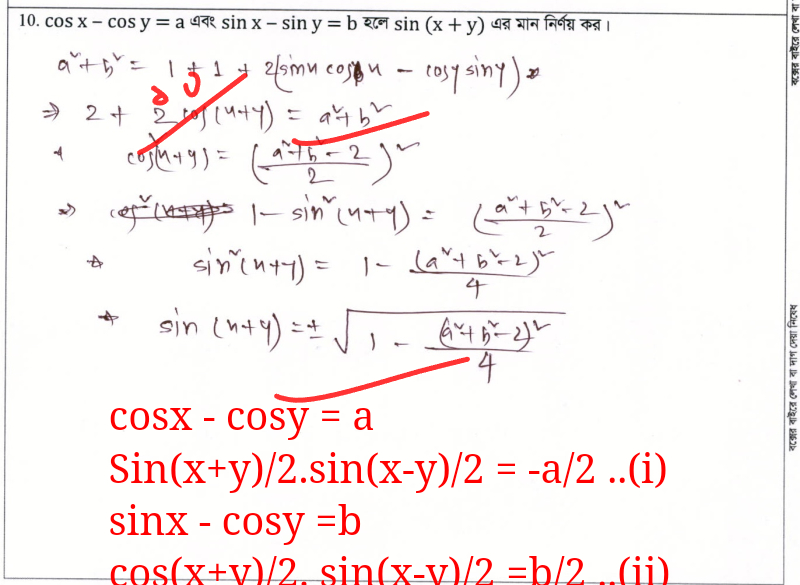 10. cos x – cos y = a এবং sin x – sin y = b হলে sin (x + y) এর মান নির্ণয় কর।
a² + b² = 1 + 1 + 2(sinx cosx – cosy siny)
⇒ 2 + 2 cos(x+y) = a² + b²
cos(x+y) = (a²+b²-2 / 2)²
⇒ 1 - sin²(x+y) = (a²+b²-2 / 2)²
sin²(x+y) = 1 - (a²+b²-2)² / 4
sin (x+y) = ± √1 - (a²+b²-2)² / 4
cosx - cosy = a
Sin(x+y)/2.sin(x-y)/2 = -a/2 ..(i)
sinx - cosy =b
cos(x+y)/2. sin(x-y)/2 =b/2 ..(ii)
বক্সের বাইরে লেখা বা দাগ দেয়া নিষেধ